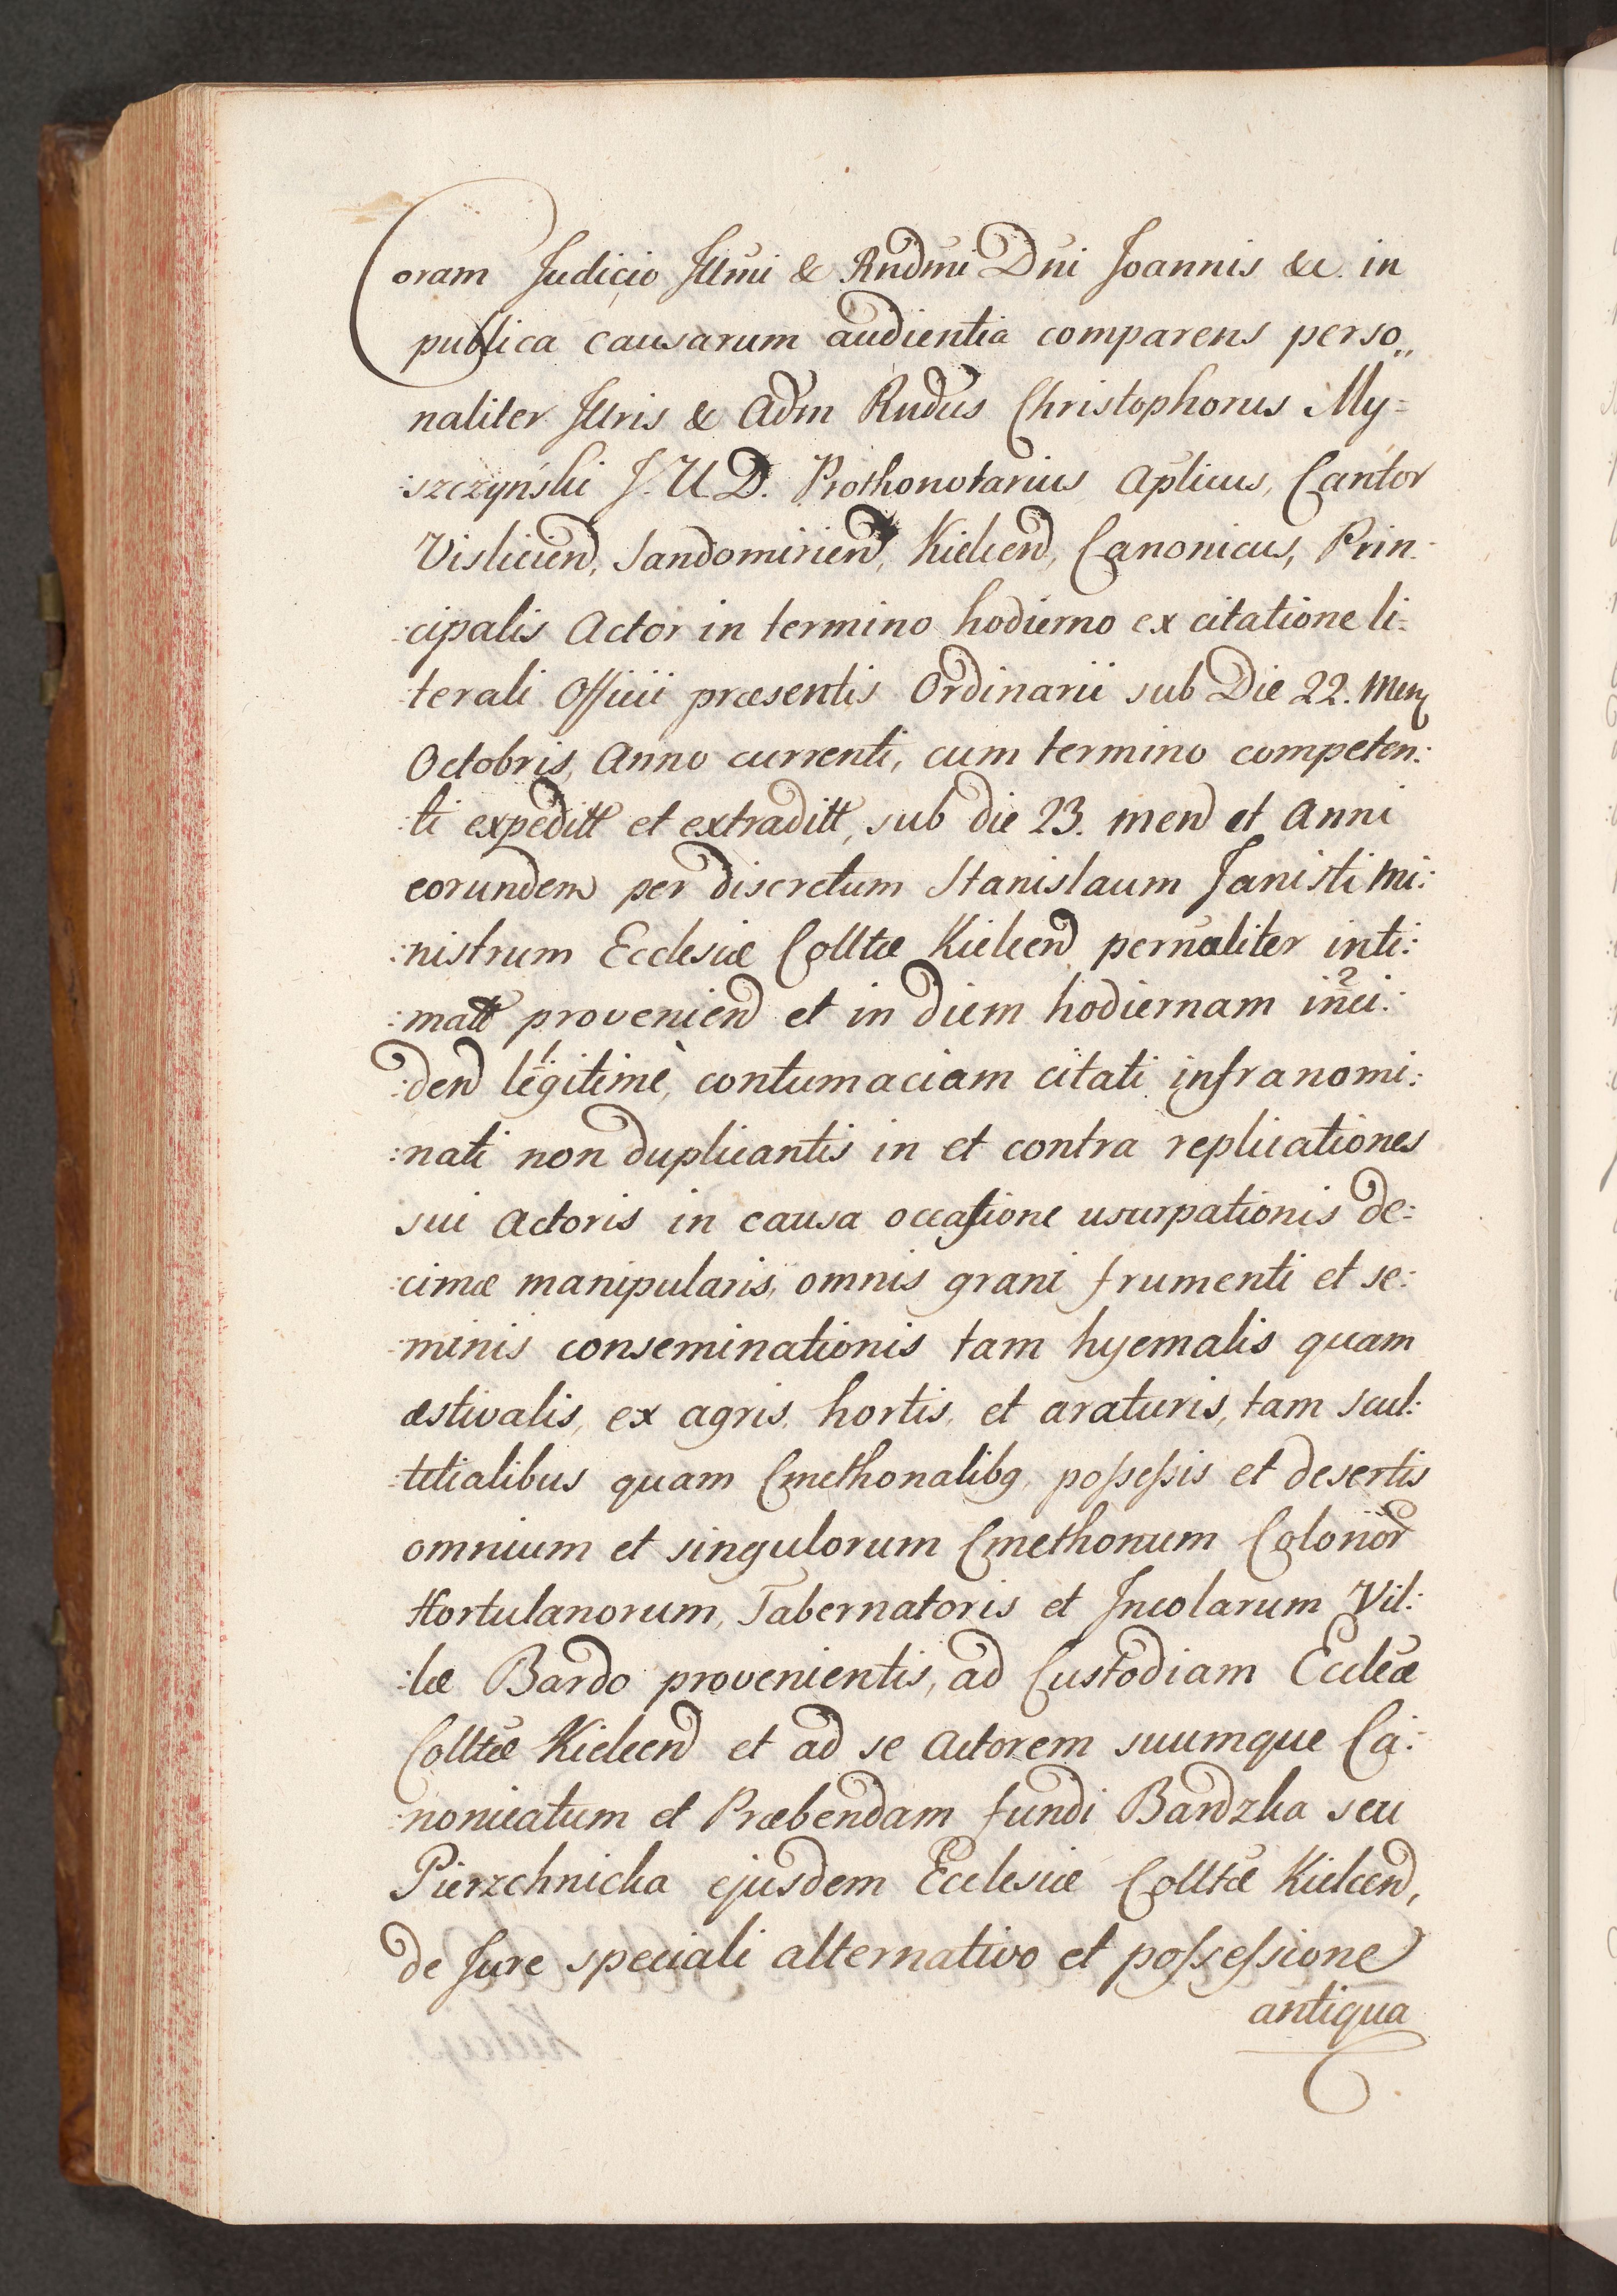 Coram Judicio Illmi & Rndmi Dni Joannis &c. in
publica causarum audientia comparens perso„
naliter Illtris & Adm Rndus Christophorus My=
:szczyński J. U D. Prothonotarius Aplicus, Cantor
Vislicien, Sandomirien, Kielcen, Canonicus, Prin:
:cipalis Actor in termino hodierno ex citatione li:
:terali Officii præsentis Ordinarii sub Die 22. Men
Octobris, Anno currenti, cum termino competen:
:ti expeditt et extraditt, sub die 23. men et Anni
eorundem per discretum Stanislaum Janisti Mi:
:nistrum Ecclesiæ Colltæ Kielcen pernaliter inti:
:matt provenien et in diem hodiernam inci:
:den legitimè, contumaciam citati infranomi:
:nati non duplicantis in et contra replicationes
sui Actoris in causa occasione usurpationis De:
:cimæ manipularis, omnis grani frumenti et se:
:minis conseminationis tam hyemalis quam
æstivalis, ex agris, hortis, et araturis, tam scul:
:tetialibus quam Cmethonalibq possessis et desertis
omnium et singulorum Cmethonum Colonor
Hortulanorum, Tabernatoris et Incolarum Vil:
:læ Bardo provenientis, ad Custodiam Eccleæ
Colltæ Kielcen et ad se Actorem suumque Ca:
:nonicatum et Præbendam fundi Bardzka seu
Pierzchnicka ejusdem Ecclesiæ Colltæ Kielcen,
de Jure speciali alternativo et possessione
antiqua